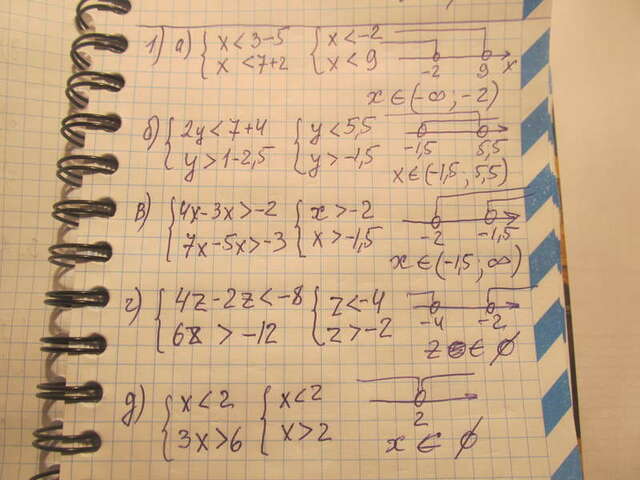 1) а) { x < 3-5 { x < -2
x < 7+2 x < 9
-2 9 x
x ∈ (-∞; -2)
б) { 2y < 7+4 { y < 5,5
y > 1-2,5 y > -1,5
-1,5 5,5
x ∈ (-1,5; 5,5)
в) { 4x-3x > -2 { x > -2
7x-5x > -3 x > -1,5
-2 -1,5
x ∈ (-1,5; ∞)
г) { 4z-2z < -8 { z < -4
6z > -12 z > -2
-4 -2
z ∈ ∅
д) { x < 2 { x < 2
3x > 6 x > 2
2
x ∈ ∅